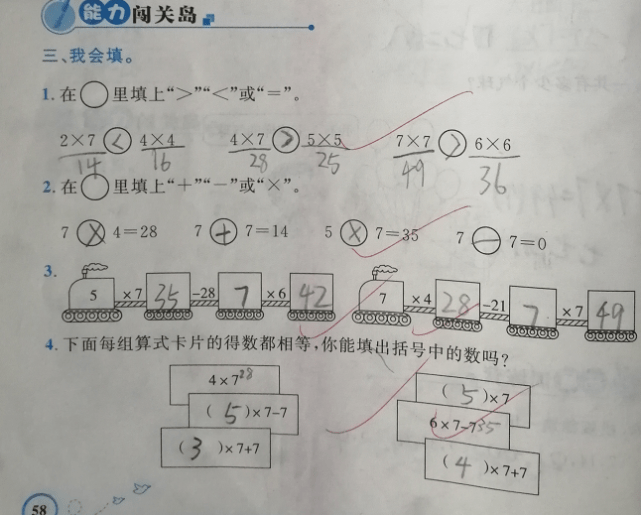 能力闯关岛
三、我会填。
1. 在○里填上“>”“<”或“=”。
2×7 < 4×4 4×7 > 5×5 7×7 > 6×6
14 16 28 25 49 36
2. 在○里填上“+”“-”或“×”。
7 × 4=28 7 + 7=14 5 × 7=35 7 - 7=0
3.
5 ×7 35 -28 7 ×6 42 7 ×4 28 -21 7 ×7 49
4. 下面每组算式卡片的得数都相等,你能填出括号中的数吗?
4×7 28
(5)×7-7
(3)×7+7
(5)×7
6×7-7 35
(4)×7+7
58